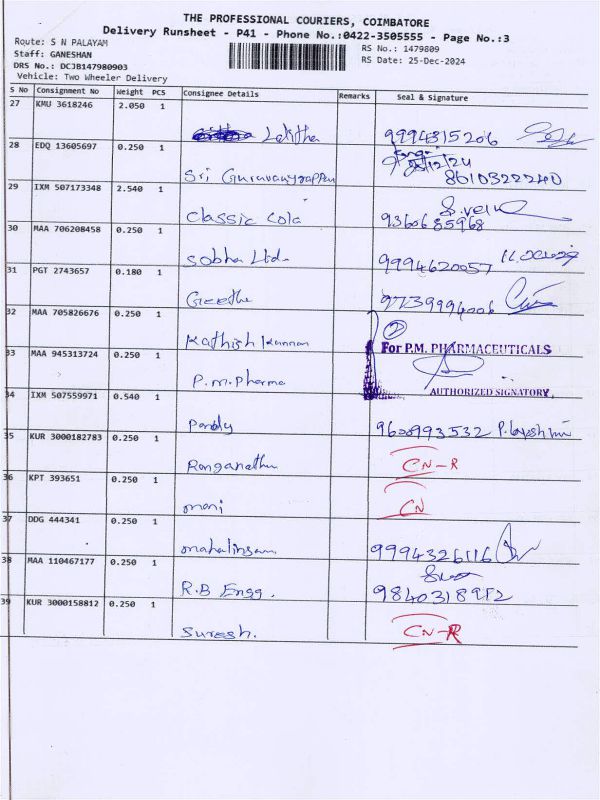 THE PROFESSIONAL COURIERS, COIMBATORE
Delivery Runsheet - P41 - Phone No.:0422-3505555 - Page No.:3
Route: S N PALAYAM
RS No.: 1479809
Staff: GANESHAN
RS Date: 25-Dec-2024
DRS No.: DCJB147980903
Vehicle: Two Wheeler Delivery
S No Consignment No Weight PCS Consignee Details Remarks Seal & Signature
27 KMU 3618246 2.050 1
Lalitha 9994815206
28 EDQ 13605697 0.250 1
Sri 8610322240
29 IXM 507173348 2.540 1
Classic Cola 9360685968
30 MAA 706208458 0.250 1
Sobha Ltd. 9994620057
31 PGT 2743657 0.180 1
Geetha 9739994006
32 MAA 705826676 0.250 1
Kathish Kannan
For P.M. PHARMACEUTICALS
33 MAA 945313724 0.250 1
P.m.Pharma
AUTHORIZED SIGNATORY
34 IXM 507559971 0.540 1
Pandy 9600993532
35 KUR 3000182783 0.250 1
Ranganathan CN-R
36 KPT 393651 0.250 1
mani CN
37 DDG 444341 0.250 1
mahalingam 9994326116
38 MAA 110467177 0.250 1
R.B Engg. 9840318912
39 KUR 3000158812 0.250 1
Suresh. CN-R